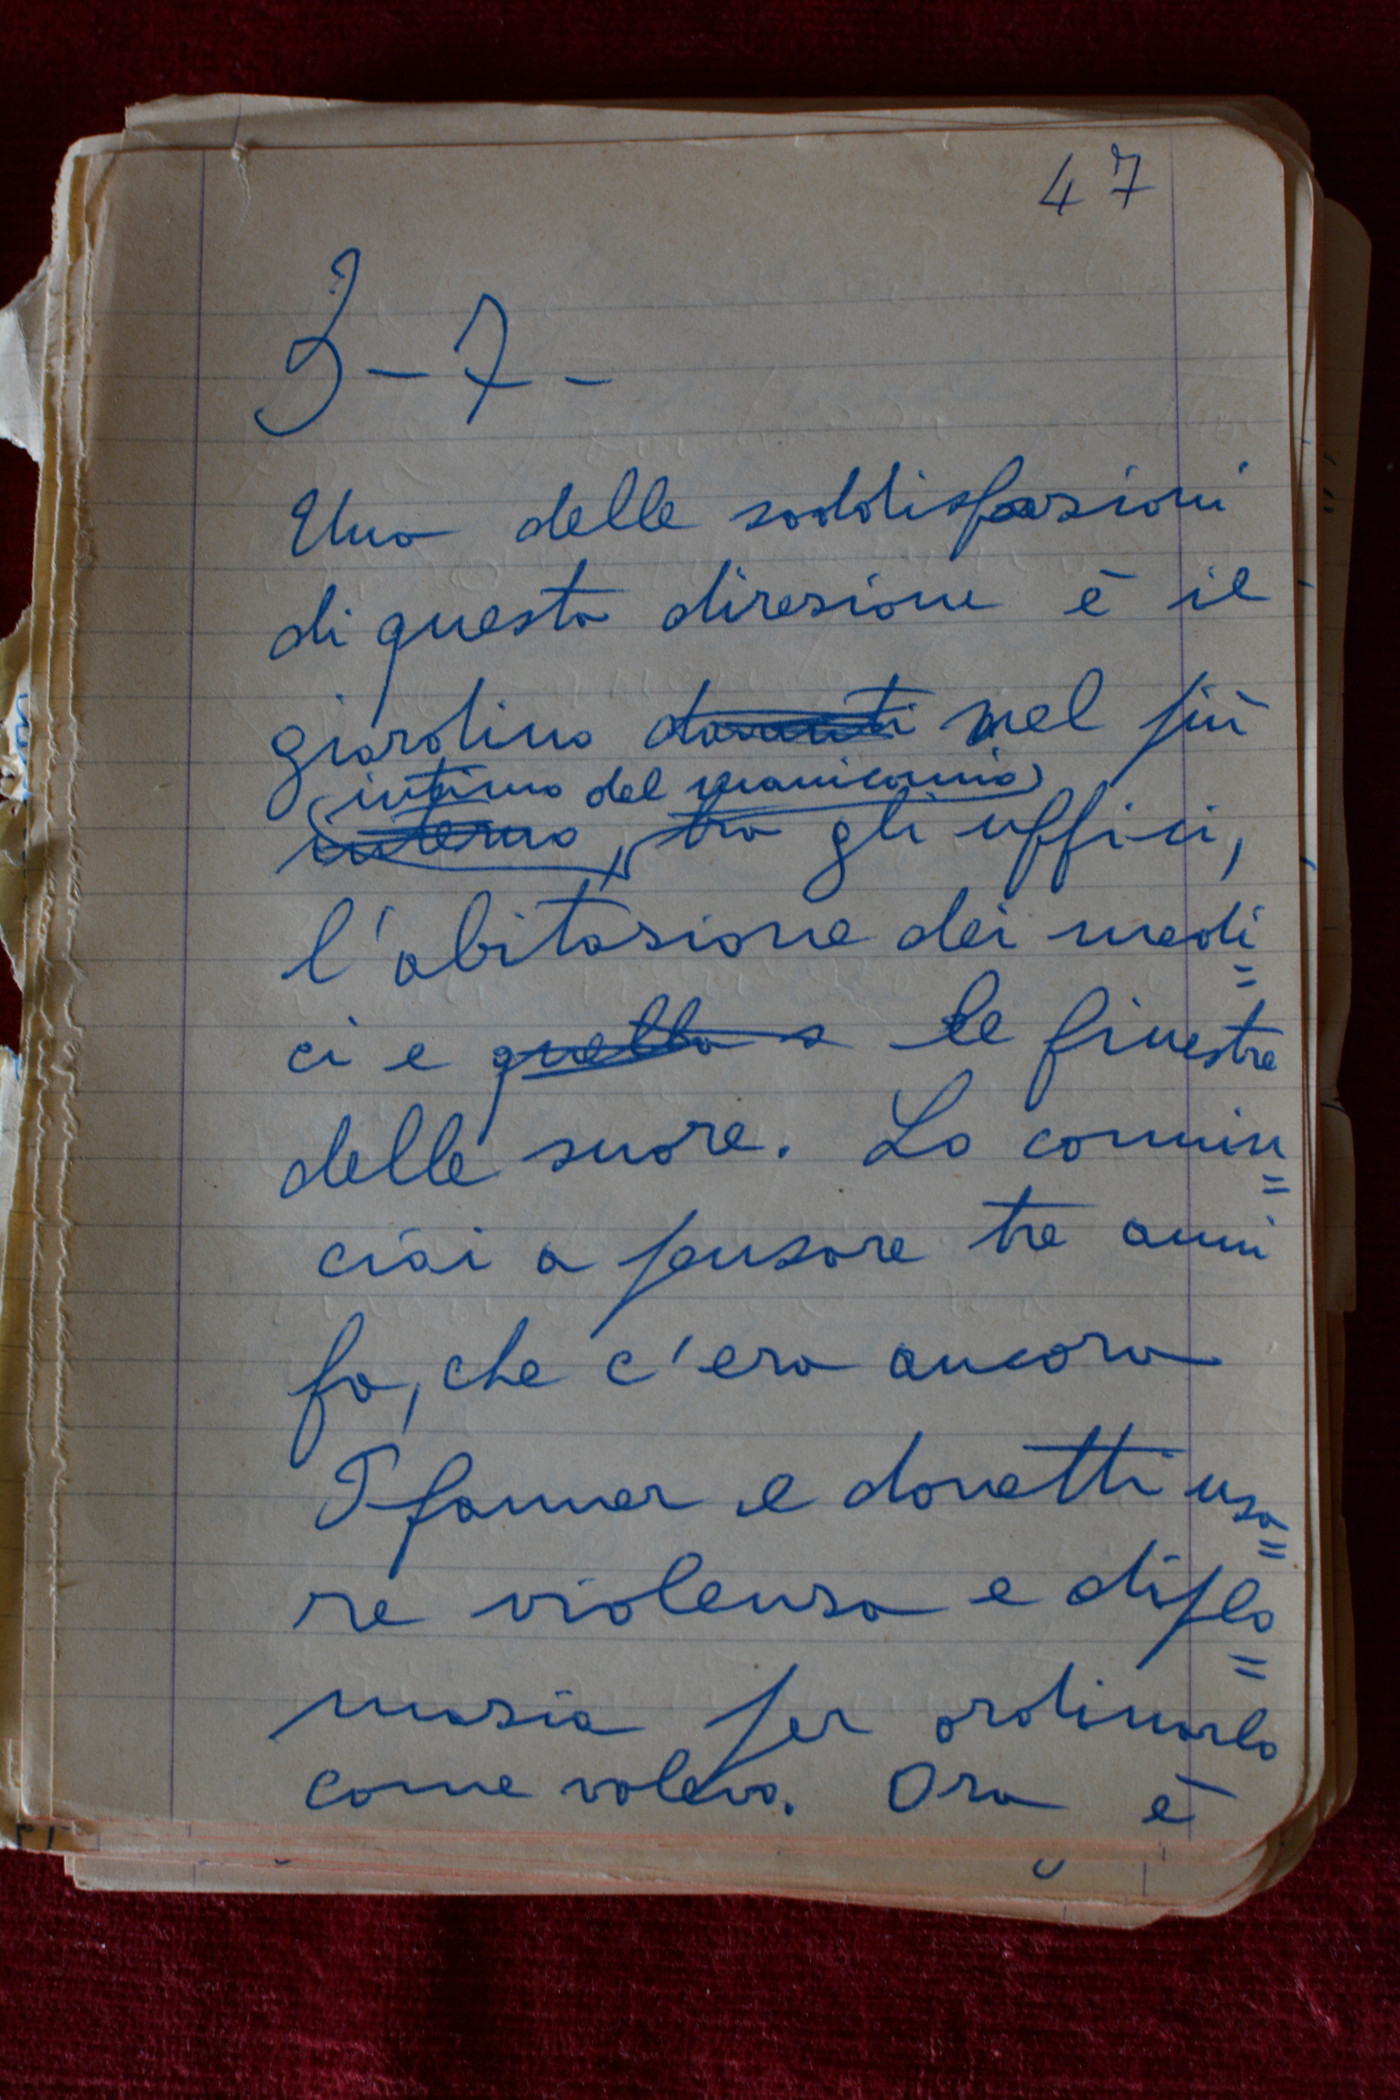 47
3-7-
Una delle soddisfazioni
di questa direzione è il
giardino davanti nel più
intimo del manicomio
interno, tra gli uffici,
l'abitazione dei medi=
ci e quella s le finestre
delle suore. Lo comin=
ciai a pensare tre anni
fa, che c'era ancora
Tfanner e dovetti usa=
re violenza e diplo=
mazia per ordinarlo
come volevo. Ora è